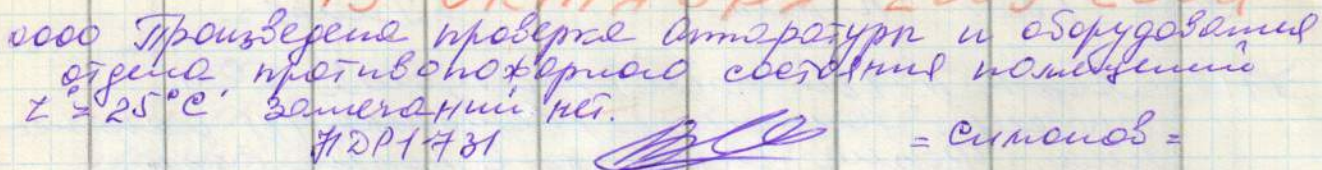 0000 Произведена проверка аппаратуры и оборудования
отдела противопожарного состояния помещений
t° = 25°C замечаний нет.
= Симонов =